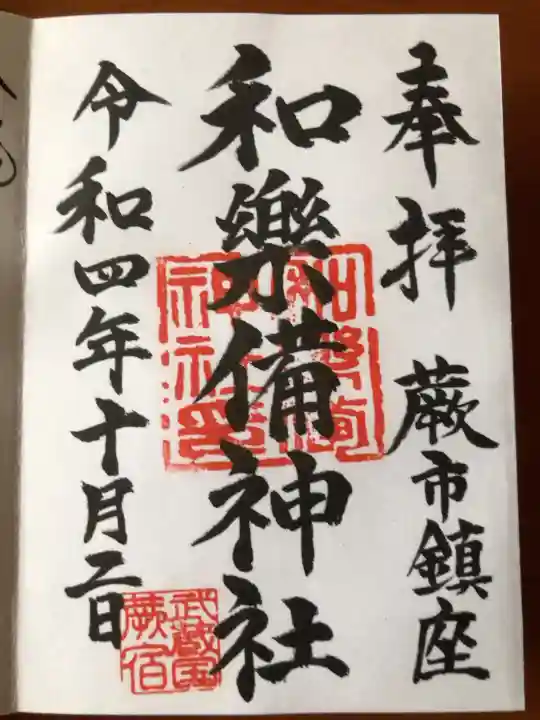 奉拝 蕨市鎮座
和樂備神社
和樂備神社印
令和四年十月二日
武蔵国蕨宿